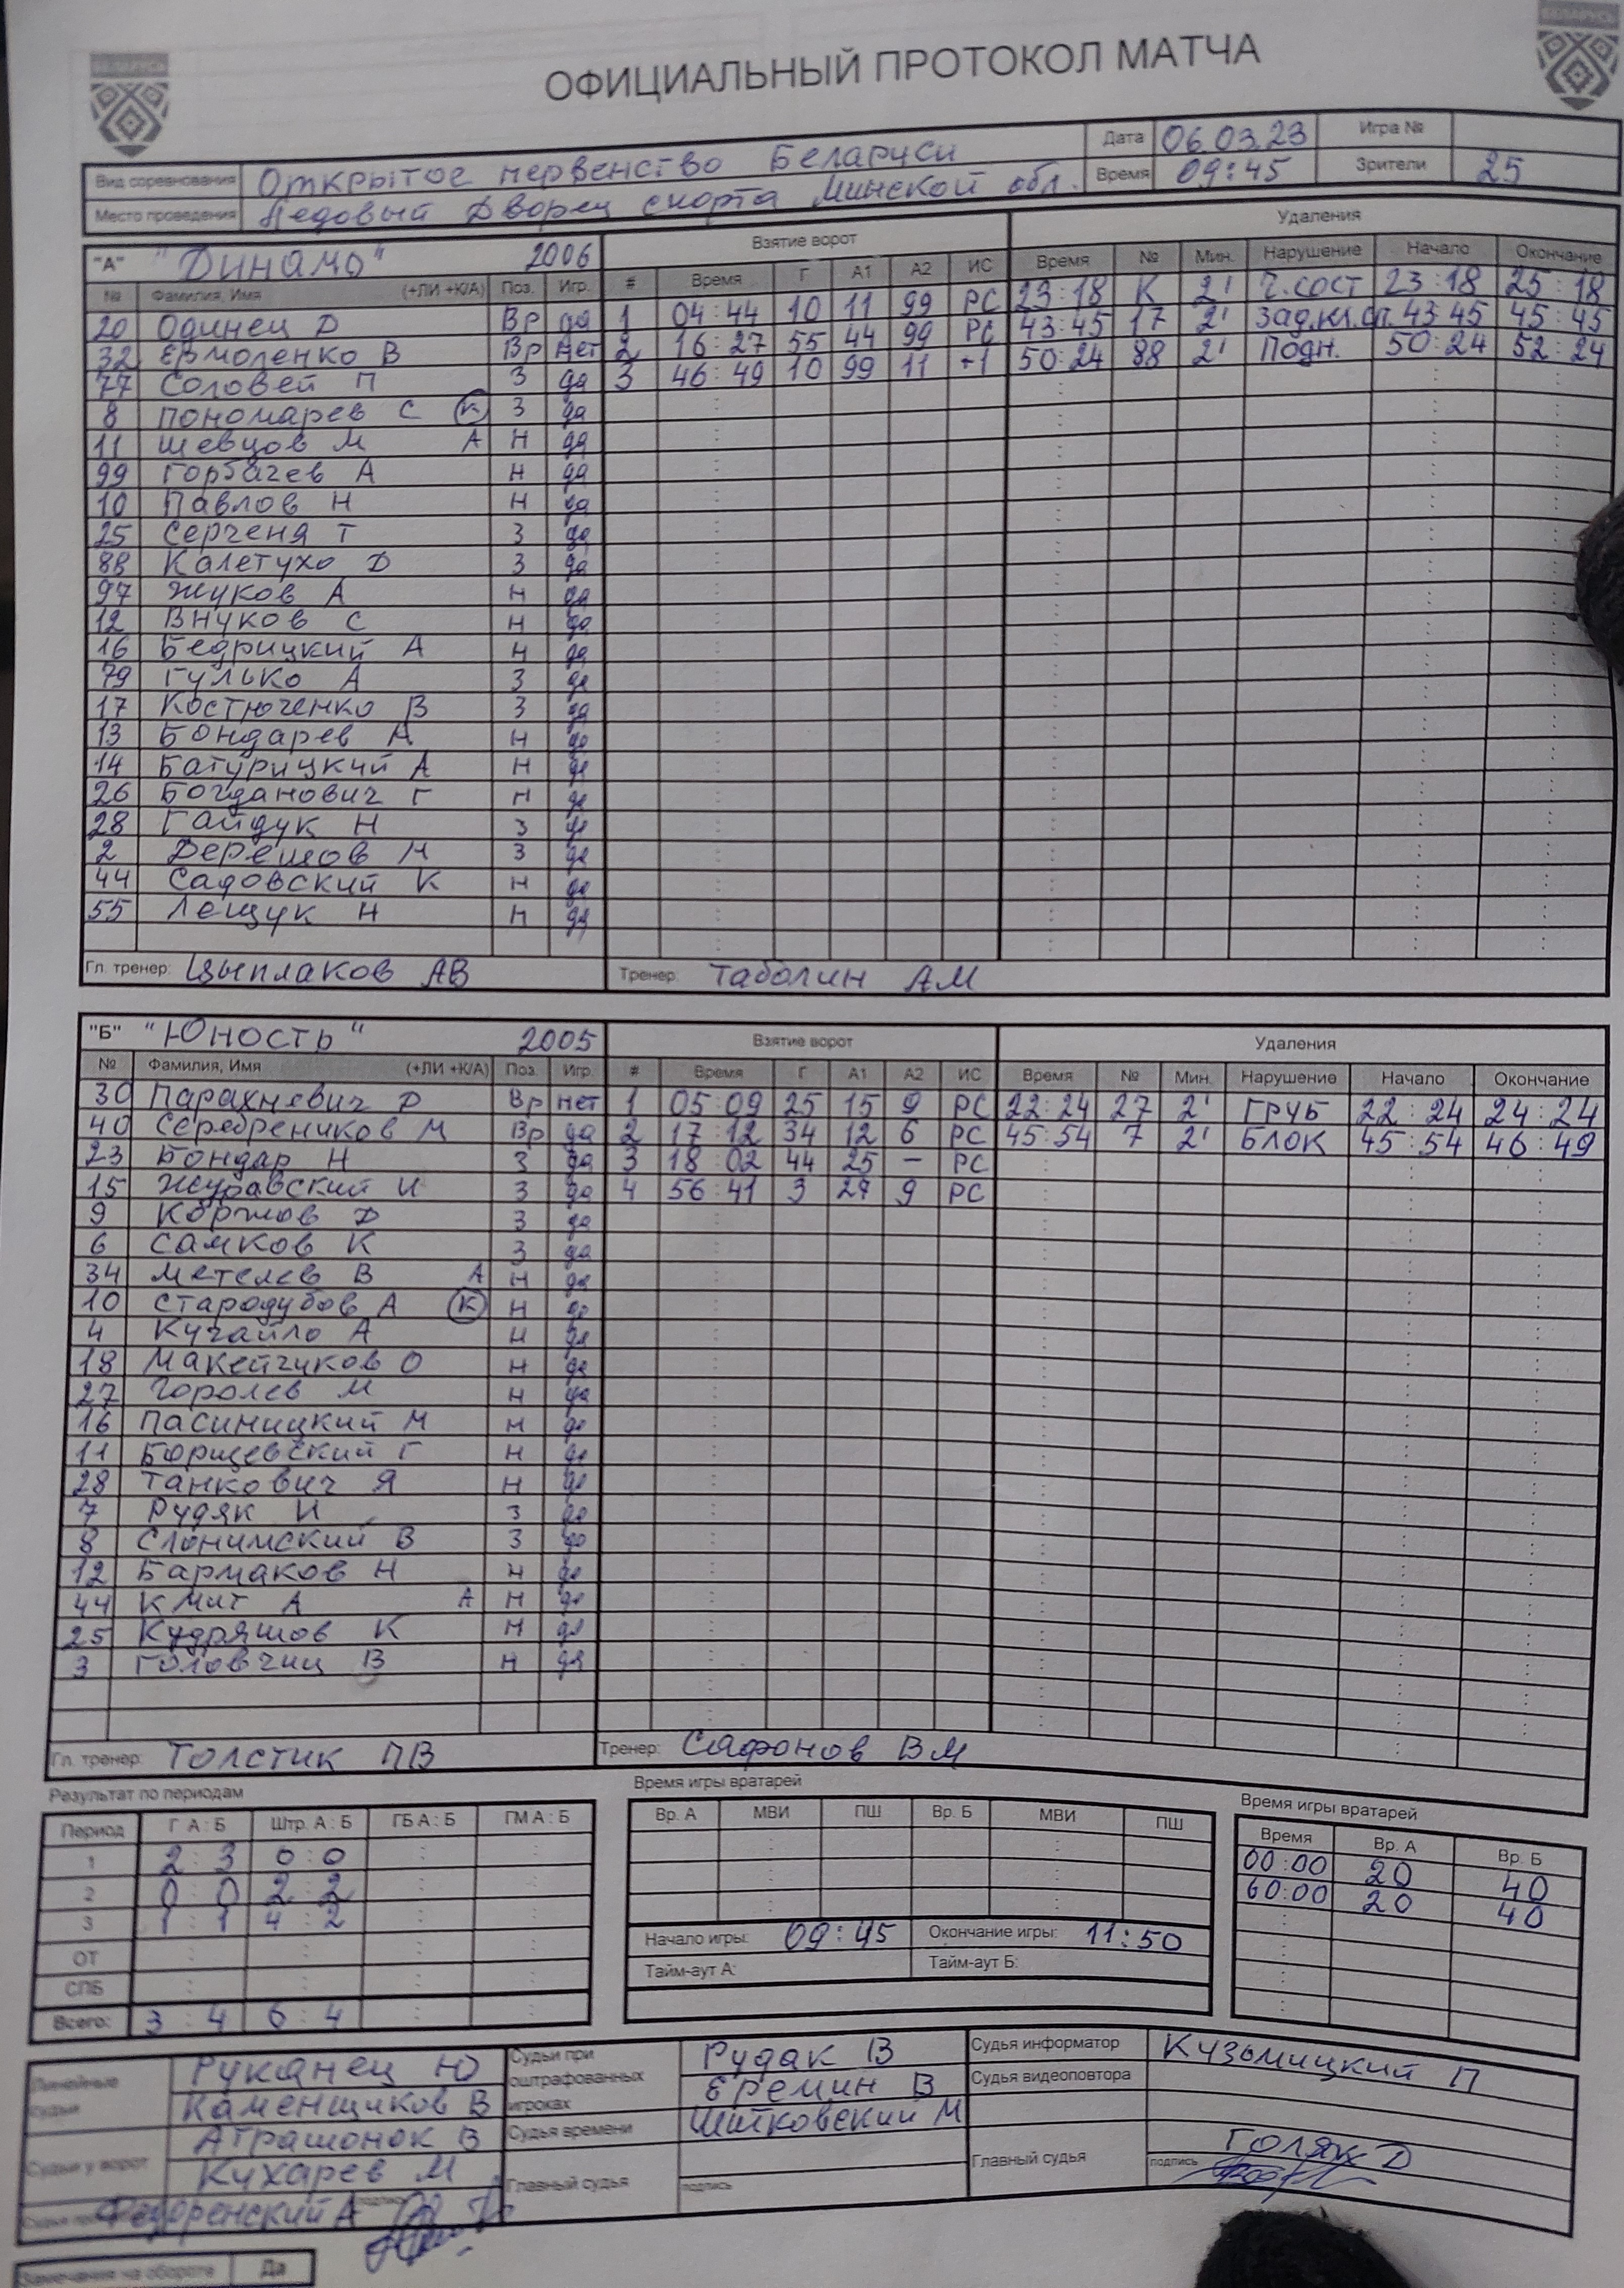 БЕЛАРУСЬ
БЕЛАРУСЬ
ОФИЦИАЛЬНЫЙ ПРОТОКОЛ МАТЧА
Вид соревнования Открытое первенство Беларуси Дата 06.03.23 Игра №
Место проведения Ледовый Дворец спорта Минской обл. Время 09:45 Зрители 25
"А" "Динамо" 2006 Взятие ворот Удаления
№ Фамилия, Имя (+ЛИ +К/А) Поз. Игр. # Время Г А1 А2 ИС Время № Мин. Нарушение Начало Окончание
20 Одинец Д Вр да 1 04:44 10 11 99 РС 23:18 К 2' Ч.сост 23:18 25:18
32 Ермоленко В Вр нет 2 16:27 55 44 99 РС 43:45 17 2' Зад.кл.сп. 43 45 45:45
77 Соловей П З да 3 46:49 10 99 11 +1 50:24 88 2' Подн. 50:24 52:24
8 Пономарев С К З да
11 Шевцов М А Н да
99 Горбачев А Н да
10 Павлов Н Н да
25 Серченя Т З да
88 Калетухо Д З да
97 Жуков А Н да
12 Внуков С Н да
16 Бедрицкий А Н да
79 Гулько А З да
17 Костюченко В З да
13 Бондарев А Н да
14 Батурицкий А Н да
26 Богданович Г Н да
28 Гайдук Н З да
2 Дерешов Н З да
44 Садовский К Н да
55 Лещук Н Н да
Гл. тренер: Цыплаков АВ Тренер: Таболин АМ
"Б" "Юность" 2005 Взятие ворот Удаления
№ Фамилия, Имя (+ЛИ +К/А) Поз. Игр. # Время Г А1 А2 ИС Время № Мин. Нарушение Начало Окончание
30 Парахневич Д Вр нет 1 05:09 25 15 9 РС 22:24 27 2' ГРУБ 22:24 24:24
40 Серебреников М Вр да 2 17:12 34 12 6 РС 45:54 7 2' БЛОК 45:54 46:49
23 Бондар Н З да 3 18:02 44 25 – РС
15 Журавский И З да 4 56:41 3 27 9 РС
9 Коржов Д З да
6 Самков К З да
34 Метелев В А Н да
10 Стародубов А К Н да
4 Кучайло А Н да
18 Макейчиков О Н да
27 Горолев М Н да
16 Пасиницкий М Н да
11 Борщевский Г Н да
28 Танкович Я Н да
7 Рудяк И З да
8 Слонимский В З да
12 Бармаков Н Н да
44 Кмит А А Н да
25 Кудряшов К Н да
3 Головчиц В Н да
Гл. тренер: Толстик ПВ Тренер: Сафонов ВМ
Результат по периодам Время игры вратарей Время игры вратарей
Период Г А : Б Штр. А : Б ГБ А : Б ГМ А : Б Вр. А МВИ ПШ Вр. Б МВИ ПШ Время Вр. А Вр. Б
1 2 : 3 0 : 0 00:00 20 40
2 0 : 0 2 : 2 60:00 20 40
3 1 : 1 4 : 2
ОТ Начало игры: 09:45 Окончание игры: 11:50
СПБ Тайм-аут А: Тайм-аут Б:
Всего: 3 : 4 6 : 4
Линейные судьи Руканец Ю Судьи при оштрафованных игроках Рудак В Судья информатор Кузьмицкий П
Каменщиков В Еремин В Судья видеоповтора
Судьи у ворот Атрашонок В Судья времени Шитковский М
Кухарев М Главный судья подпись Главный судья Голяк Д подпись
Федоренский А подпись
Замечания на обороте Да